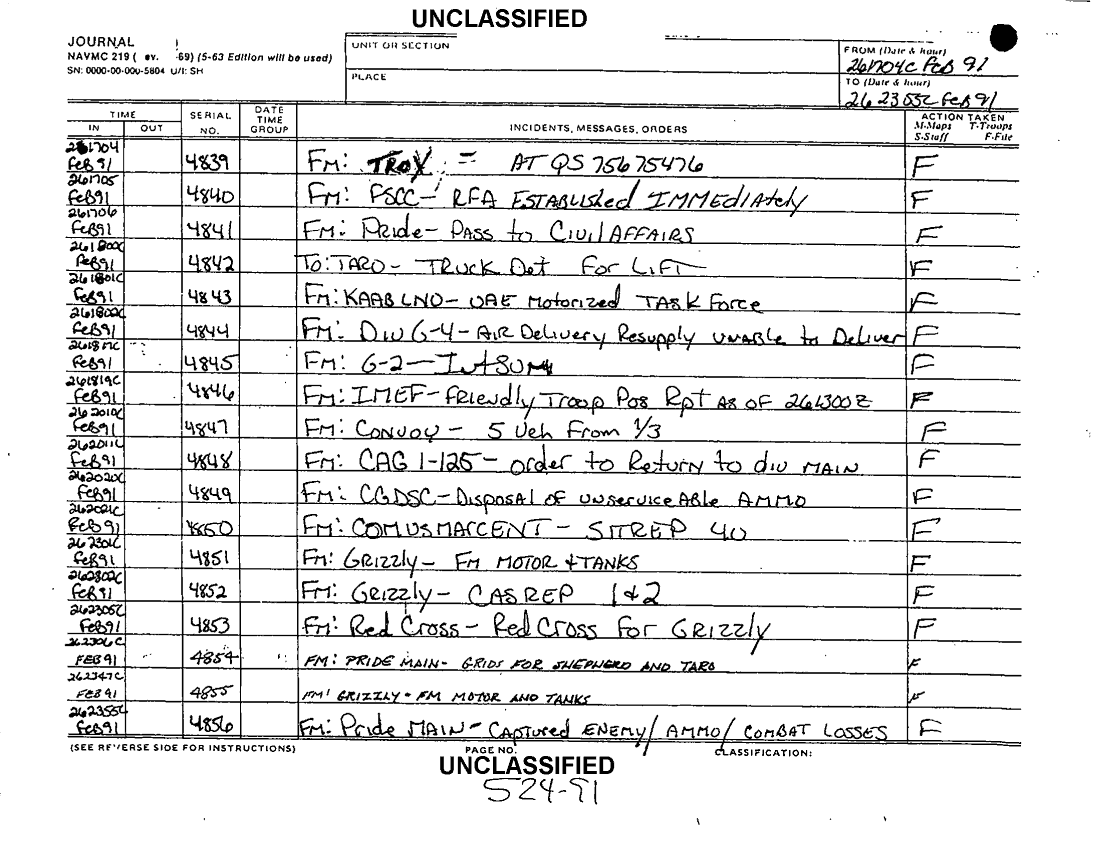 UNCLASSIFIED
JOURNAL
NAVMC 219 ( ev. -69) (5-63 Edition will be used)
SN: 0000-00-000-5804 U/I: SH
UNIT OR SECTION
PLACE
FROM (Date & hour)
261704C Feb 91
TO (Date & hour)
262355C Feb 91
TIME
IN OUT
SERIAL NO.
DATE TIME GROUP
INCIDENTS, MESSAGES, ORDERS
ACTION TAKEN
M-Maps T-Troops
S-Staff F-File
261704 Feb 91 4839 Fm: TROY = AT QS 75675476 F
261705 Feb91 4840 Fm: FSCC- RFA ESTABLISHED IMMEDIAtely F
261706 Feb91 4841 Fm: Pride- Pass to Civil AFFAIRS F
261800C Feb91 4842 To: TARO- TRUCK Det For LIFT F
261801C Feb91 4843 Fm: KAAB LNO- UAE Motorized TASK Force F
261802C Feb91 4844 Fm: DIV G-4- AIR Delivery Resupply UNABLE to Deliver F
Feb91 4845 Fm: G-2- F
261819C Feb91 4846 Fm: IMEF- Friendly Troop Pos Rpt AS OF 261300Z F
262010C Feb91 4847 Fm: Convoy- 5 Veh From 1/3 F
262011C Feb91 4848 Fm: CAG 1-125- order to Return to div MAIN F
262020C Feb91 4849 Fm: CGDSC- Disposal OF UNserviceABle AMMO F
262021C Feb91 4850 Fm: COMUSMARCENT- SITREP 40 F
262301C Feb91 4851 Fm: Grizzly- FM MOTOR & TANKS F
262302C Feb91 4852 Fm: Grizzly- CASREP 1&2 F
262305C Feb91 4853 Fm: Red Cross- Red Cross For GRIZZly F
262306C FEB91 4854 FM: PRIDE MAIN- GRIDS FOR SHEPHERD AND TARO F
262347C FEB91 4855 FM: GRIZZLY- FM MOTOR AND TANKS F
262355C Feb91 4856 Fm: Pride MAIN- Captured ENEMY/ AMMO/ COMBAT LOSSES F
(SEE REVERSE SIDE FOR INSTRUCTIONS)
PAGE NO.
CLASSIFICATION:
UNCLASSIFIED
S24-91